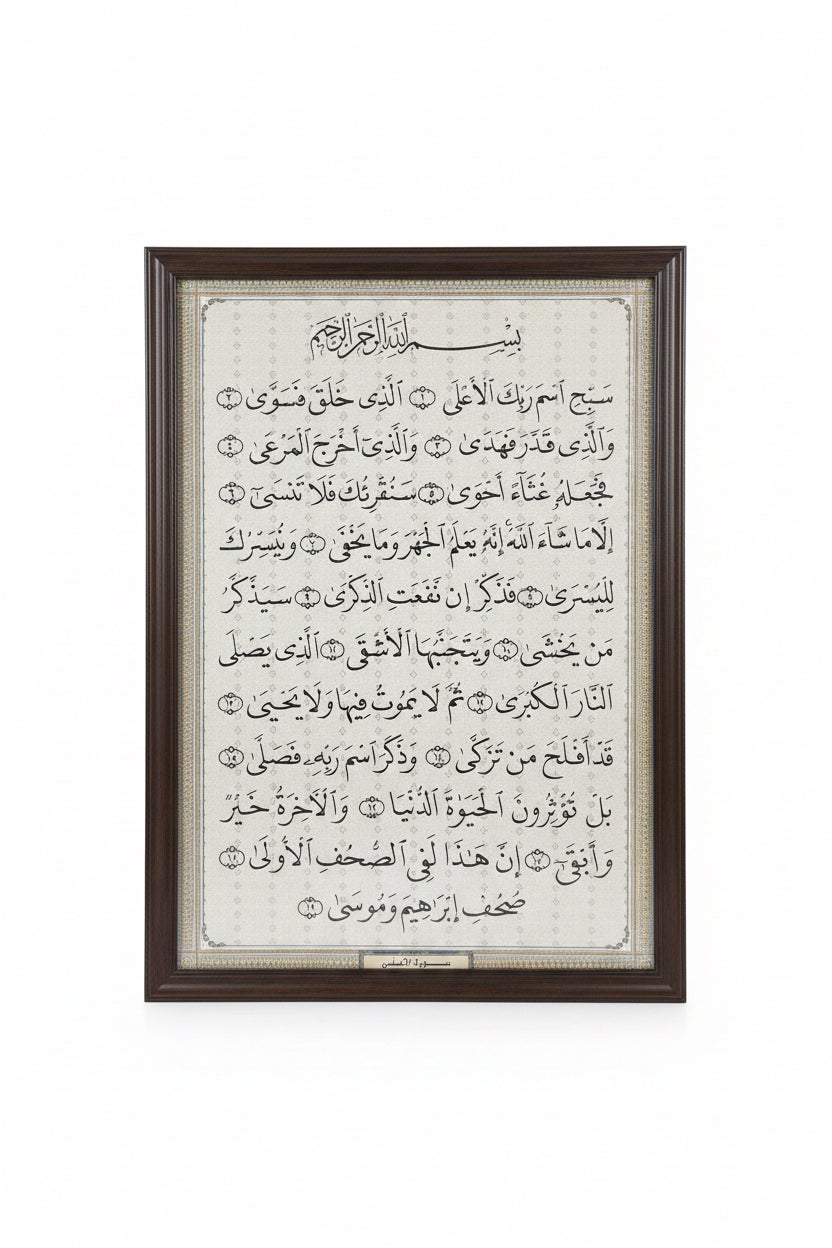 بِسْمِ ٱللَّهِ ٱلرَّحْمَٰنِ ٱلرَّحِيمِ
سَبِّحِ ٱسْمَ رَبِّكَ ٱلْأَعْلَى ١ ٱلَّذِى خَلَقَ فَسَوَّىٰ ٢
وَٱلَّذِى قَدَّرَ فَهَدَىٰ ٣ وَٱلَّذِىٓ أَخْرَجَ ٱلْمَرْعَىٰ ٤
فَجَعَلَهُۥ غُثَآءً أَحْوَىٰ ٥ سَنُقْرِئُكَ فَلَا تَنسَىٰٓ ٦
إِلَّا مَا شَآءَ ٱللَّهُ ۚ إِنَّهُۥ يَعْلَمُ ٱلْجَهْرَ وَمَا يَخْفَىٰ ٧ وَنُيَسِّرُكَ
لِلْيُسْرَىٰ ٨ فَذَكِّرْ إِن نَّفَعَتِ ٱلذِّكْرَىٰ ٩ سَيَذَّكَّرُ
مَن يَخْشَىٰ ١٠ وَيَتَجَنَّبُهَا ٱلْأَشْقَى ١١ ٱلَّذِى يَصْلَى
ٱلنَّارَ ٱلْكُبْرَىٰ ١٢ ثُمَّ لَا يَمُوتُ فِيهَا وَلَا يَحْيَىٰ ١٣
قَدْ أَفْلَحَ مَن تَزَكَّىٰ ١٤ وَذَكَرَ ٱسْمَ رَبِّهِۦ فَصَلَّىٰ ١٥
بَلْ تُؤْثِرُونَ ٱلْحَيَوٰةَ ٱلدُّنْيَا ١٦ وَٱلْآخِرَةُ خَيْرٌ
وَأَبْقَىٰٓ ١٧ إِنَّ هَٰذَا لَفِى ٱلصُّحُفِ ٱلْأُولَىٰ ١٨
صُحُفِ إِبْرَٰهِيمَ وَمُوسَىٰ ١٩